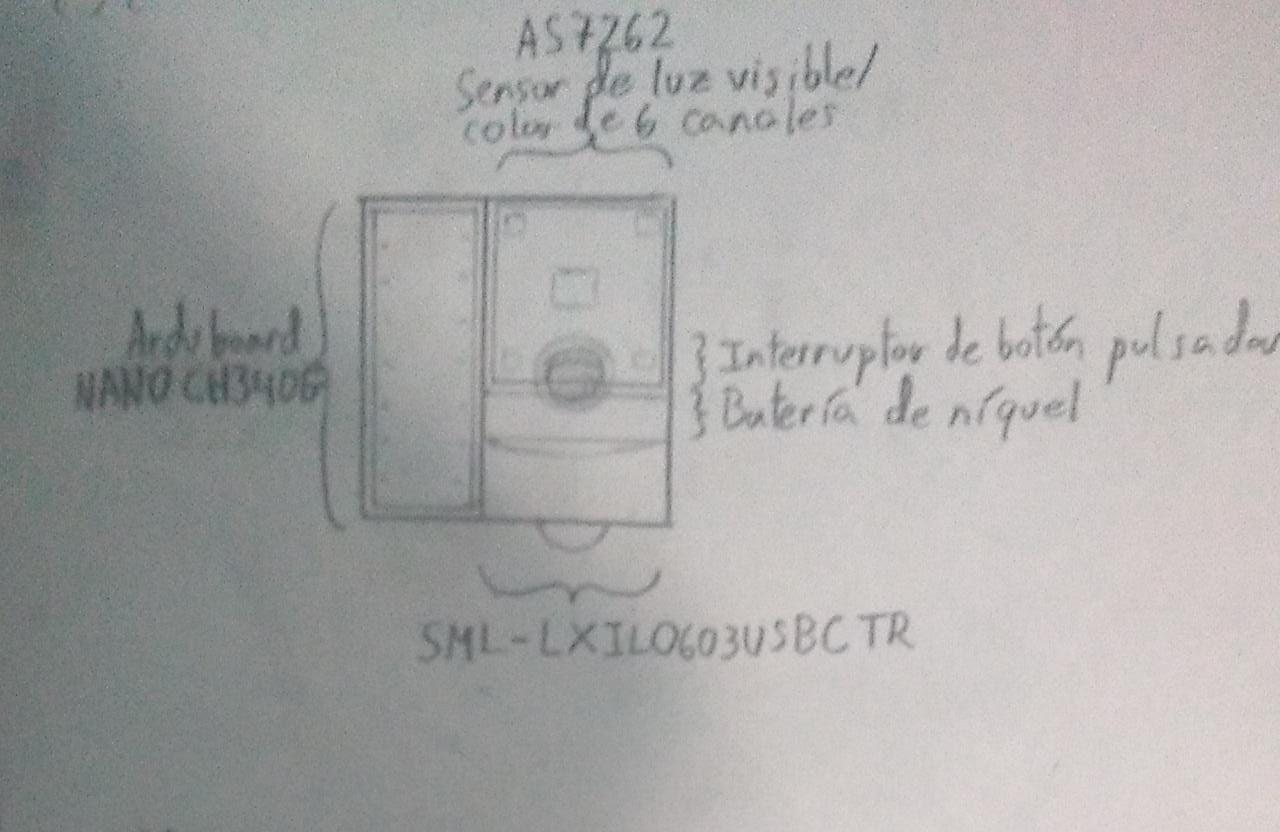 AS7262
Sensor de luz visible/
color de 6 canales
Ardu board
NANO CH340G
Interruptor de botón pulsador
Batería de níquel
SML-LXIL0603USBCTR